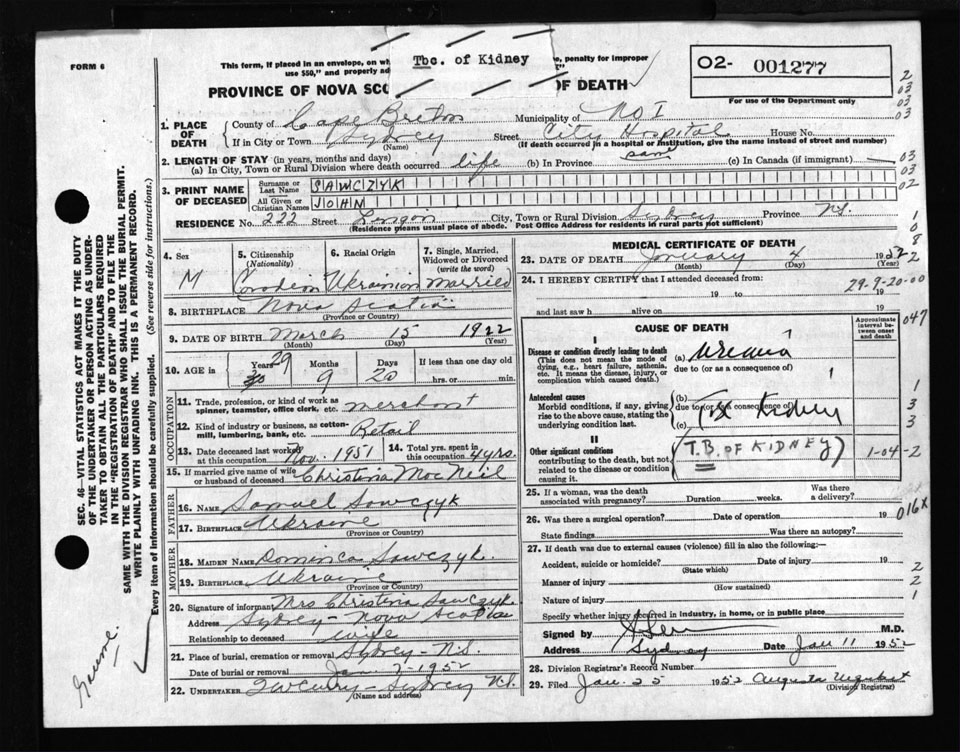 FORM 6
This form, if placed in an envelope, on wh
e, penalty for improper
use $50," and properly ad
Tbc. of Kidney
PROVINCE OF NOVA SCO
OF DEATH
O2- 001277
For use of the Department only
2
03
03
03
1. PLACE OF DEATH
County of Cape Breton
Municipality of No 1
If in City or Town Sydney Street City Hospital House No.
(Name) (If death occurred in a hospital or institution, give the name instead of street and number)
2. LENGTH OF STAY (in years, months and days)
(a) In City, Town or Rural Division where death occurred life (b) In Province same (c) In Canada (if immigrant) —
03
03
3. PRINT NAME OF DECEASED
Surname or Last Name SAWCZYK
02
All Given or Christian Names JOHN
RESIDENCE No. 222 Street City, Town or Rural Division Sydney Province N.S.
(Residence means usual place of abode. Post Office Address for residents in rural parts not sufficient)
1
0
8
4. Sex M
5. Citizenship (Nationality) Canadean
6. Racial Origin Ukrainian
7. Single, Married, Widowed or Divorced (write the word) Married
8. BIRTHPLACE Nova Scotia
(Province or Country)
9. DATE OF BIRTH March 15 1922
(Month) (Day) (Year)
10. AGE in Years 29 30 Months 9 Days 20 If less than one day old
hrs. or min.
OCCUPATION
11. Trade, profession, or kind of work as spinner, teamster, office clerk, etc. merchant
12. Kind of industry or business, as cotton-mill, lumbering, bank, etc. Retail
13. Date deceased last worked at this occupation Nov. 1951
14. Total yrs. spent in this occupation 4 yrs.
15. If married give name of wife or husband of deceased Christina MacNeil
FATHER
16. NAME Samuel Sawczyk
17. BIRTHPLACE Ukraine
(Province or Country)
MOTHER
18. MAIDEN NAME Dominica Sawczyk.
19. BIRTHPLACE Ukraine
(Province or Country)
20. Signature of informant Mrs Christina Sawczyk.
Address Sydney - Nova Scotia
Relationship to deceased wife
21. Place of burial, cremation or removal Sydney - N.S.
Date of burial or removal Jan 7 - 1952
22. UNDERTAKER T W Curry - Sydney N.S.
(Name and address)
MEDICAL CERTIFICATE OF DEATH
23. DATE OF DEATH January 4 1952
(Month) (Day) (Year)
2
24. I HEREBY CERTIFY that I attended deceased from:
29-9-20-00
19 to 19
and last saw h alive on 19
CAUSE OF DEATH
Approximate interval between onset and death
047
I
Disease or condition directly leading to death
(This does not mean the mode of dying, e.g., heart failure, asthenia, etc. It means the disease, injury, or complication which caused death.
(a) Uremia
due to (or as a consequence of)
Antecedent causes
Morbid conditions, if any, giving rise to the above cause, stating the underlying condition last.
(b)
due to (or as consequence of)
(c) Kidney
1
3
3
II
Other significant conditions
contributing to the death, but not related to the disease or condition causing it.
(T.B. OF KIDNEY)
1-04-2
25. If a woman, was the death associated with pregnancy? Duration weeks. Was there a delivery?
26. Was there a surgical operation? Date of operation 19
016X
State findings Was there an autopsy?
27. If death was due to external causes (violence) fill in also the following:—
Accident, suicide or homicide? Date of injury 19
(State which)
2
Manner of injury
(How sustained)
2
Nature of injury
1
Specify whether injury occurred in industry, in home, or in public place
Signed by M.D.
Address Sydney Date Jan 11 1952
28. Division Registrar's Record Number
29. Filed Jan. 25 1952 Augusta
(Division Registrar)
SEC. 46—VITAL STATISTICS ACT MAKES IT THE DUTY
OF THE UNDERTAKER OR PERSON ACTING AS UNDER-
TAKER TO OBTAIN ALL THE PARTICULARS REQUIRED
IN THE "REGISTRATION OF DEATH" AND TO FILE THE
SAME WITH THE DIVISION REGISTRAR WHO SHALL ISSUE THE BURIAL PERMIT.
WRITE PLAINLY WITH UNFADING INK. THIS IS A PERMANENT RECORD.
Every item of information should be carefully supplied. (See reverse side for instructions.)